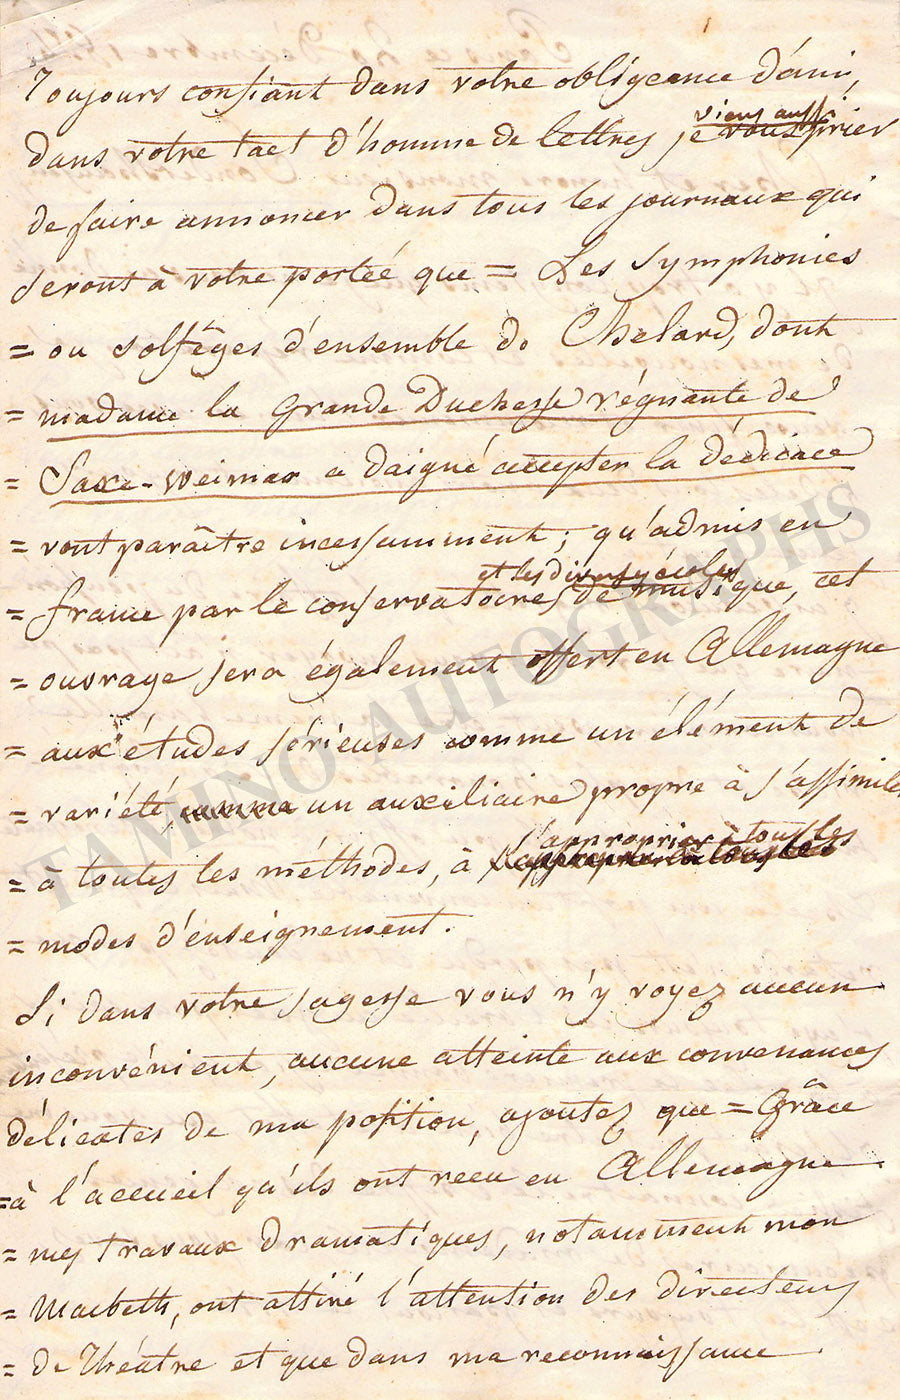 Toujours confiant dans votre obligeance d'ami,
dans votre tact d'homme de lettres je viens aussi vous prier
de faire annoncer dans tous les journaux qui
seront à votre porteé que = Les symphonies
= ou solfèges d'ensemble de Chelard, dont
= madame la Grande Duchesse régnante de
= Saxe-Weimar a daigné accepter la dédicace
= vont paraître incessamment; qu'admis en
= france par le conservatoire et les diverses écoles de musique, cet
= ouvrage sera également offert en Allemagne
= aux études sérieuses comme un élément de
= variété comme un auxiliaire propre à s'assimiler
= à toutes les méthodes, à s'approprier à tous les
= modes d'enseignement.
Si dans votre sagesse vous n'y voyez aucun
inconvénient, aucune atteinte aux convenances
délicates de ma position, ajoutez que = Grâce
= à l'accueil qu'ils ont recu en Allemagne
= mes travaux dramatiques, notamment mon
= Macbeth, ont attiré l'attention des directeurs
= de théatre et que dans ma reconnaissance
TAMINO AUTOGRAPHS